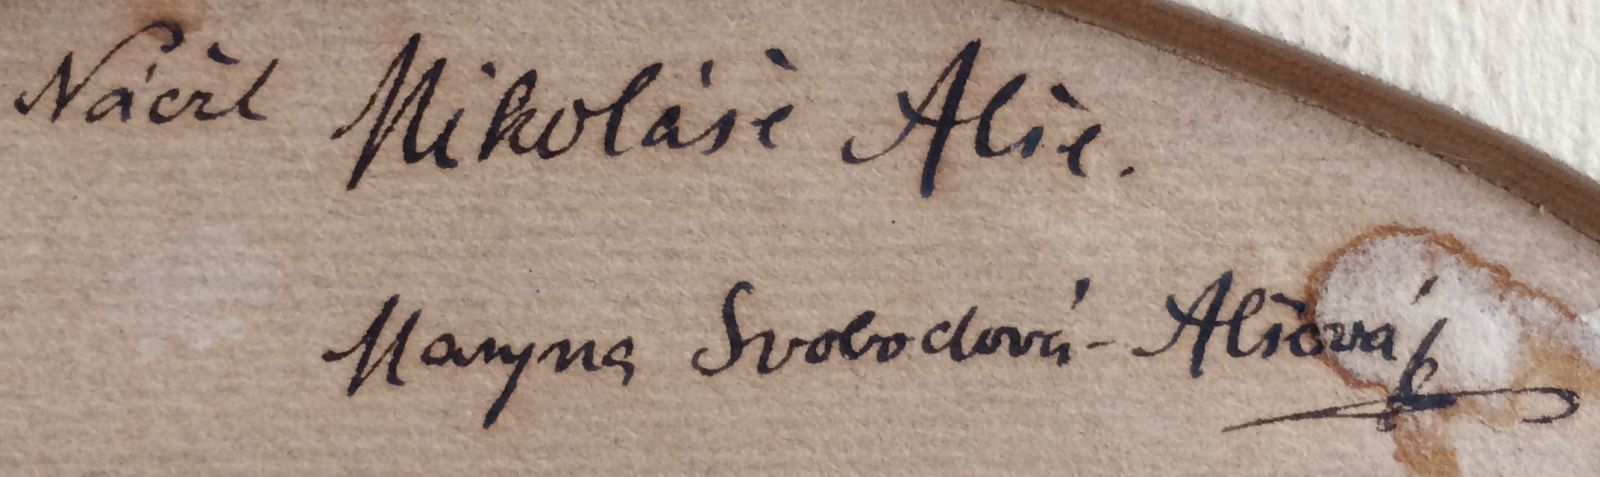 Náčrt Mikoláše Alše.
Maryna Svobodová-Alšová